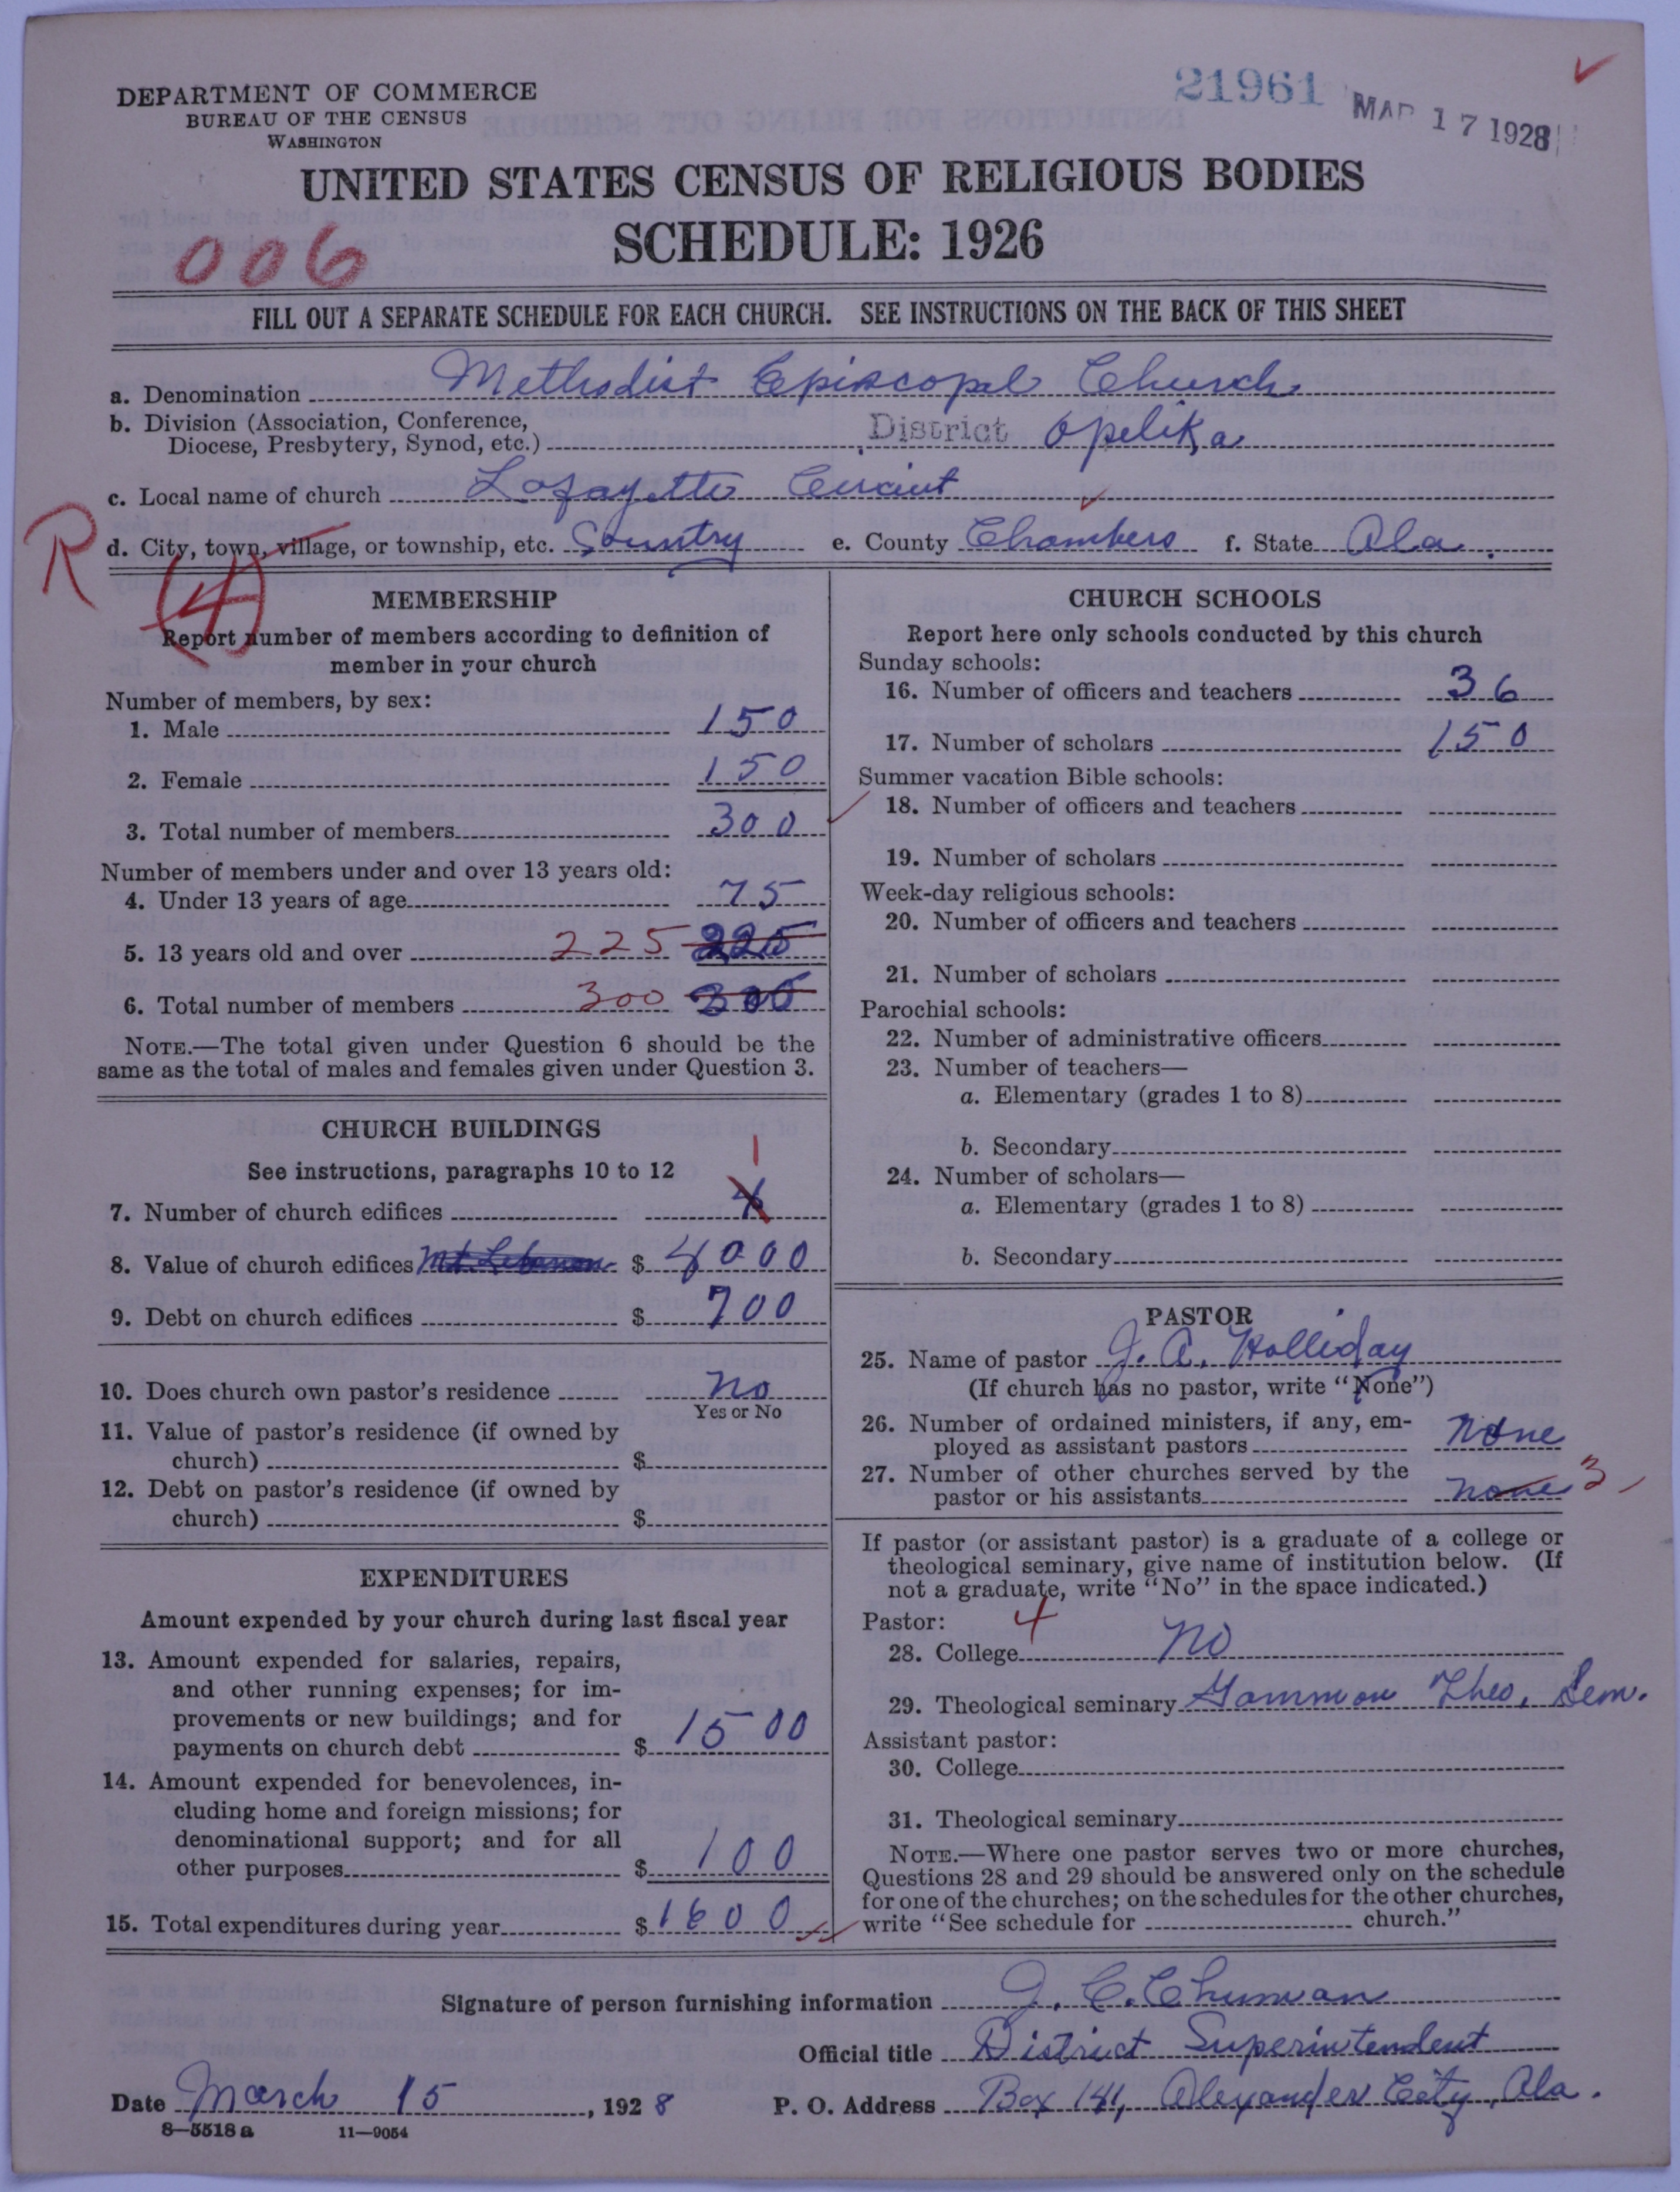 21961
MAR 17 1928
DEPARTMENT OF COMMERCE
BUREAU OF THE CENSUS
WASHINGTON
UNITED STATES CENSUS OF RELIGIOUS BODIES
SCHEDULE: 1926
006
FILL OUT A SEPARATE SCHEDULE FOR EACH CHURCH. SEE INSTRUCTIONS ON THE BACK OF THIS SHEET
a. Denomination Methodist Episcopal Church
b. Division (Association, Conference,
Diocese, Presbytery, Synod, etc.) District Opelika
c. Local name of church Lafayette Circuit
R
d. City, town, village, or township, etc. Country e. County Chambers f. State Ala.
(4)
MEMBERSHIP
Report number of members according to definition of
member in your church
Number of members, by sex:
1. Male 150
2. Female 150
3. Total number of members 300
Number of members under and over 13 years old:
4. Under 13 years of age 75
5. 13 years old and over 225 225
6. Total number of members 300 300
NOTE.—The total given under Question 6 should be the
same as the total of males and females given under Question 3.
CHURCH BUILDINGS
See instructions, paragraphs 10 to 12
1
7. Number of church edifices 4
8. Value of church edifices Mt. Lebanon $ 4000
9. Debt on church edifices $ 700
10. Does church own pastor's residence no
Yes or No
11. Value of pastor's residence (if owned by
church) $
12. Debt on pastor's residence (if owned by
church) $
EXPENDITURES
Amount expended by your church during last fiscal year
13. Amount expended for salaries, repairs,
and other running expenses; for im-
provements or new buildings; and for
payments on church debt $ 1500
14. Amount expended for benevolences, in-
cluding home and foreign missions; for
denominational support; and for all
other purposes $ 100
15. Total expenditures during year $ 1600
CHURCH SCHOOLS
Report here only schools conducted by this church
Sunday schools:
16. Number of officers and teachers 36
17. Number of scholars 150
Summer vacation Bible schools:
18. Number of officers and teachers
19. Number of scholars
Week-day religious schools:
20. Number of officers and teachers
21. Number of scholars
Parochial schools:
22. Number of administrative officers
23. Number of teachers—
a. Elementary (grades 1 to 8)
b. Secondary
24. Number of scholars—
a. Elementary (grades 1 to 8)
b. Secondary
PASTOR
25. Name of pastor J. A. Holliday
(If church has no pastor, write "None")
26. Number of ordained ministers, if any, em-
ployed as assistant pastors None
27. Number of other churches served by the
pastor or his assistants none 3
If pastor (or assistant pastor) is a graduate of a college or
theological seminary, give name of institution below. (If
not a graduate, write "No" in the space indicated.)
Pastor: 4
28. College no
29. Theological seminary Gammon Theo. Sem.
Assistant pastor:
30. College
31. Theological seminary
NOTE.—Where one pastor serves two or more churches,
Questions 28 and 29 should be answered only on the schedule
for one of the churches; on the schedules for the other churches,
write "See schedule for church."
Signature of person furnishing information J. C. Chunan
Official title District Superintendent
Date March 15, 1928 P. O. Address Box 141, Alexander City, Ala.
8—5518a 11—9054